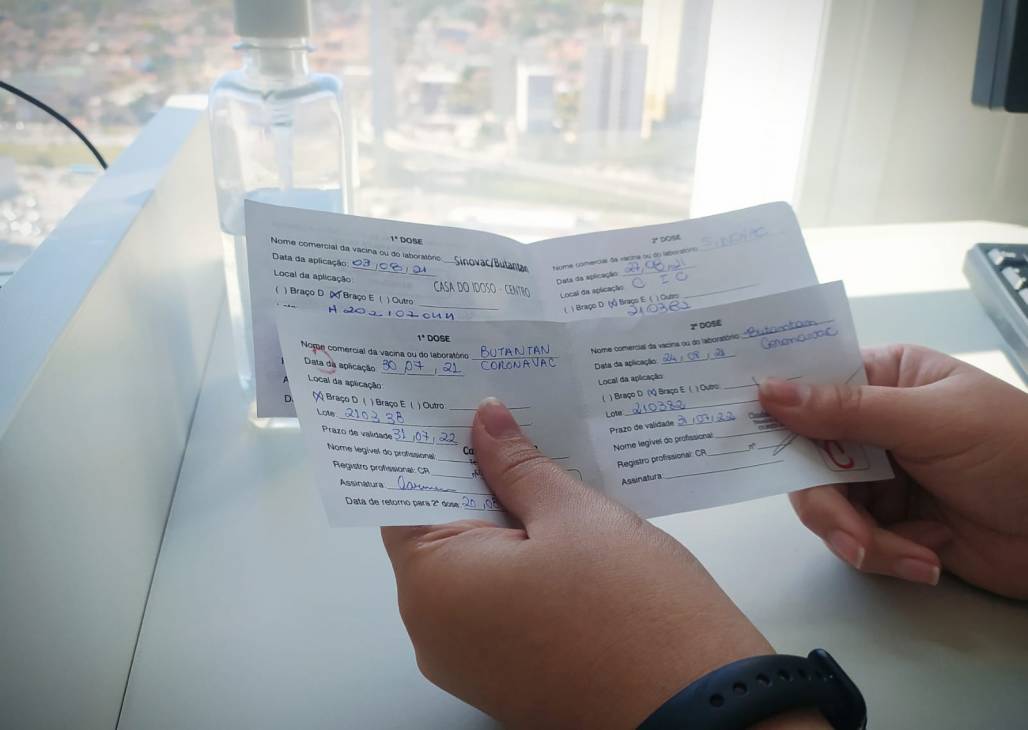 1ª DOSE
Nome comercial da vacina ou do laboratório: Sinovac/Butantan
Data da aplicação:
Local da aplicação: CASA DO IDOSO - CENTRO
( ) Braço D (X) Braço E ( ) Outro:
2ª DOSE
Nome comercial da vacina ou do laboratório: SINOVAC
Data da aplicação:
Local da aplicação: C I C
( ) Braço D (X) Braço E ( ) Outro:
210382
1ª DOSE
Nome comercial da vacina ou do laboratório BUTANTAN
CORONAVAC
Data da aplicação 30, 07, 21
Local da aplicação:
(X) Braço D ( ) Braço E ( ) Outro:
Lote: 210338
Prazo de validade 31, 07, 22
Nome legível do profissional:
Registro profissional: CR
Assinatura
Data de retorno para 2ª dose: 20, 08
2ª DOSE
Nome comercial da vacina ou do laboratório: Butantan
Coronavac
Data da aplicação: 24, 08, 21
Local da aplicação:
( ) Braço D (X) Braço E ( ) Outro:
Lote 210382
Prazo de validade 31, 07, 22
Nome legível do profissional:
Registro profissional: CR nº
Assinatura
C